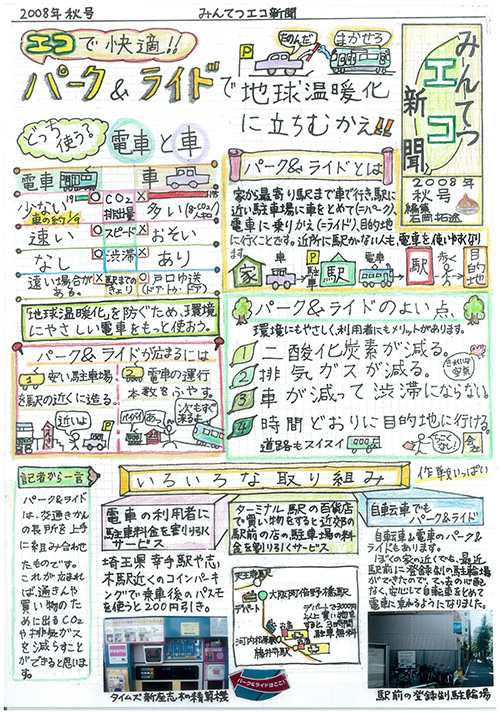 2008年 秋号
みんてつエコ新聞
エコで快適!!
パーク&ライドで
地球温暖化
に立ちむかえ!!
たのんだ
まかせろ
P
みんてつ
エコ
新聞
2008年
秋号
編集
どっち使う?
電車と車
電車
車
少ない
CO₂
排出量
多い
速い
スピード
おそい
なし
渋滞
あり
遠い場合が
ある。
駅までの
きょり
戸口輸送
(ドア・トゥ・ドア)
「地球温暖化」を防ぐため、環境
にやさしい電車をもっと使おう。
パーク&ライドとは
家から最寄り駅まで車で行き、駅に
近い駐車場に車をとめて(=パーク)、
電車に乗りかえ(=ライド)、目的地
に行くことです。近所に駅がない人も、電車を使いやすくなり
ます。
家
車
P
駐車
駅
電車
駅
歩く
目的地
パーク&ライドのよい点、
環境にもやさしく、利用者にもメリットがあります。
1 二酸化炭素が減る。
2 排気ガスが減る。
3 車が減って渋滞にならない。
4 時間どおりに目的地に行ける。
道路もスイスイ
きれいな
空気
ちこくしない
会社
パーク&ライドが広まるには
1 安い駐車場
を駅の近くに造る。
近いよ
2 電車の運行
本数をふやす。
次もすぐ
来るよ
記者から一言
パーク&ライド
は、交通きかん
の長所を上手
に組み合わせ
たものです。
これが広まれ
ば、通きんや
買い物のた
めに出るCO₂
や排気ガス
を減らすこと
ができると思いま
す。
いろいろな取り組み
作戦いっぱい
電車の利用者に
駐車料金を割り引く
サービス
埼玉県 幸手駅や志
木駅近くのコインパーキ
ングで乗車後のパスモ
を使うと200円引き。
タイムズ新座志木の精算機
ターミナル駅の百貨店
で買い物をすると近郊の
駅前の店の駐車場の料
金を割り引くサービス
天王寺駅
デパート
大阪阿倍野橋駅
デパートで3000円
以上買い物を
すると3時間
駐車無料
河内松原駅
お店
藤井寺駅
パーク&ライドはここ!
自転車でも
パーク&ライド
自転車&電車のパーク&
ライドもあります。
ぼくの家の近くでも、最近
駅前に登録制の駐輪場
ができたので、
なく、安心して自転車をとめて
電車に乗れるようになりました。
駅前の登録制駐輪場